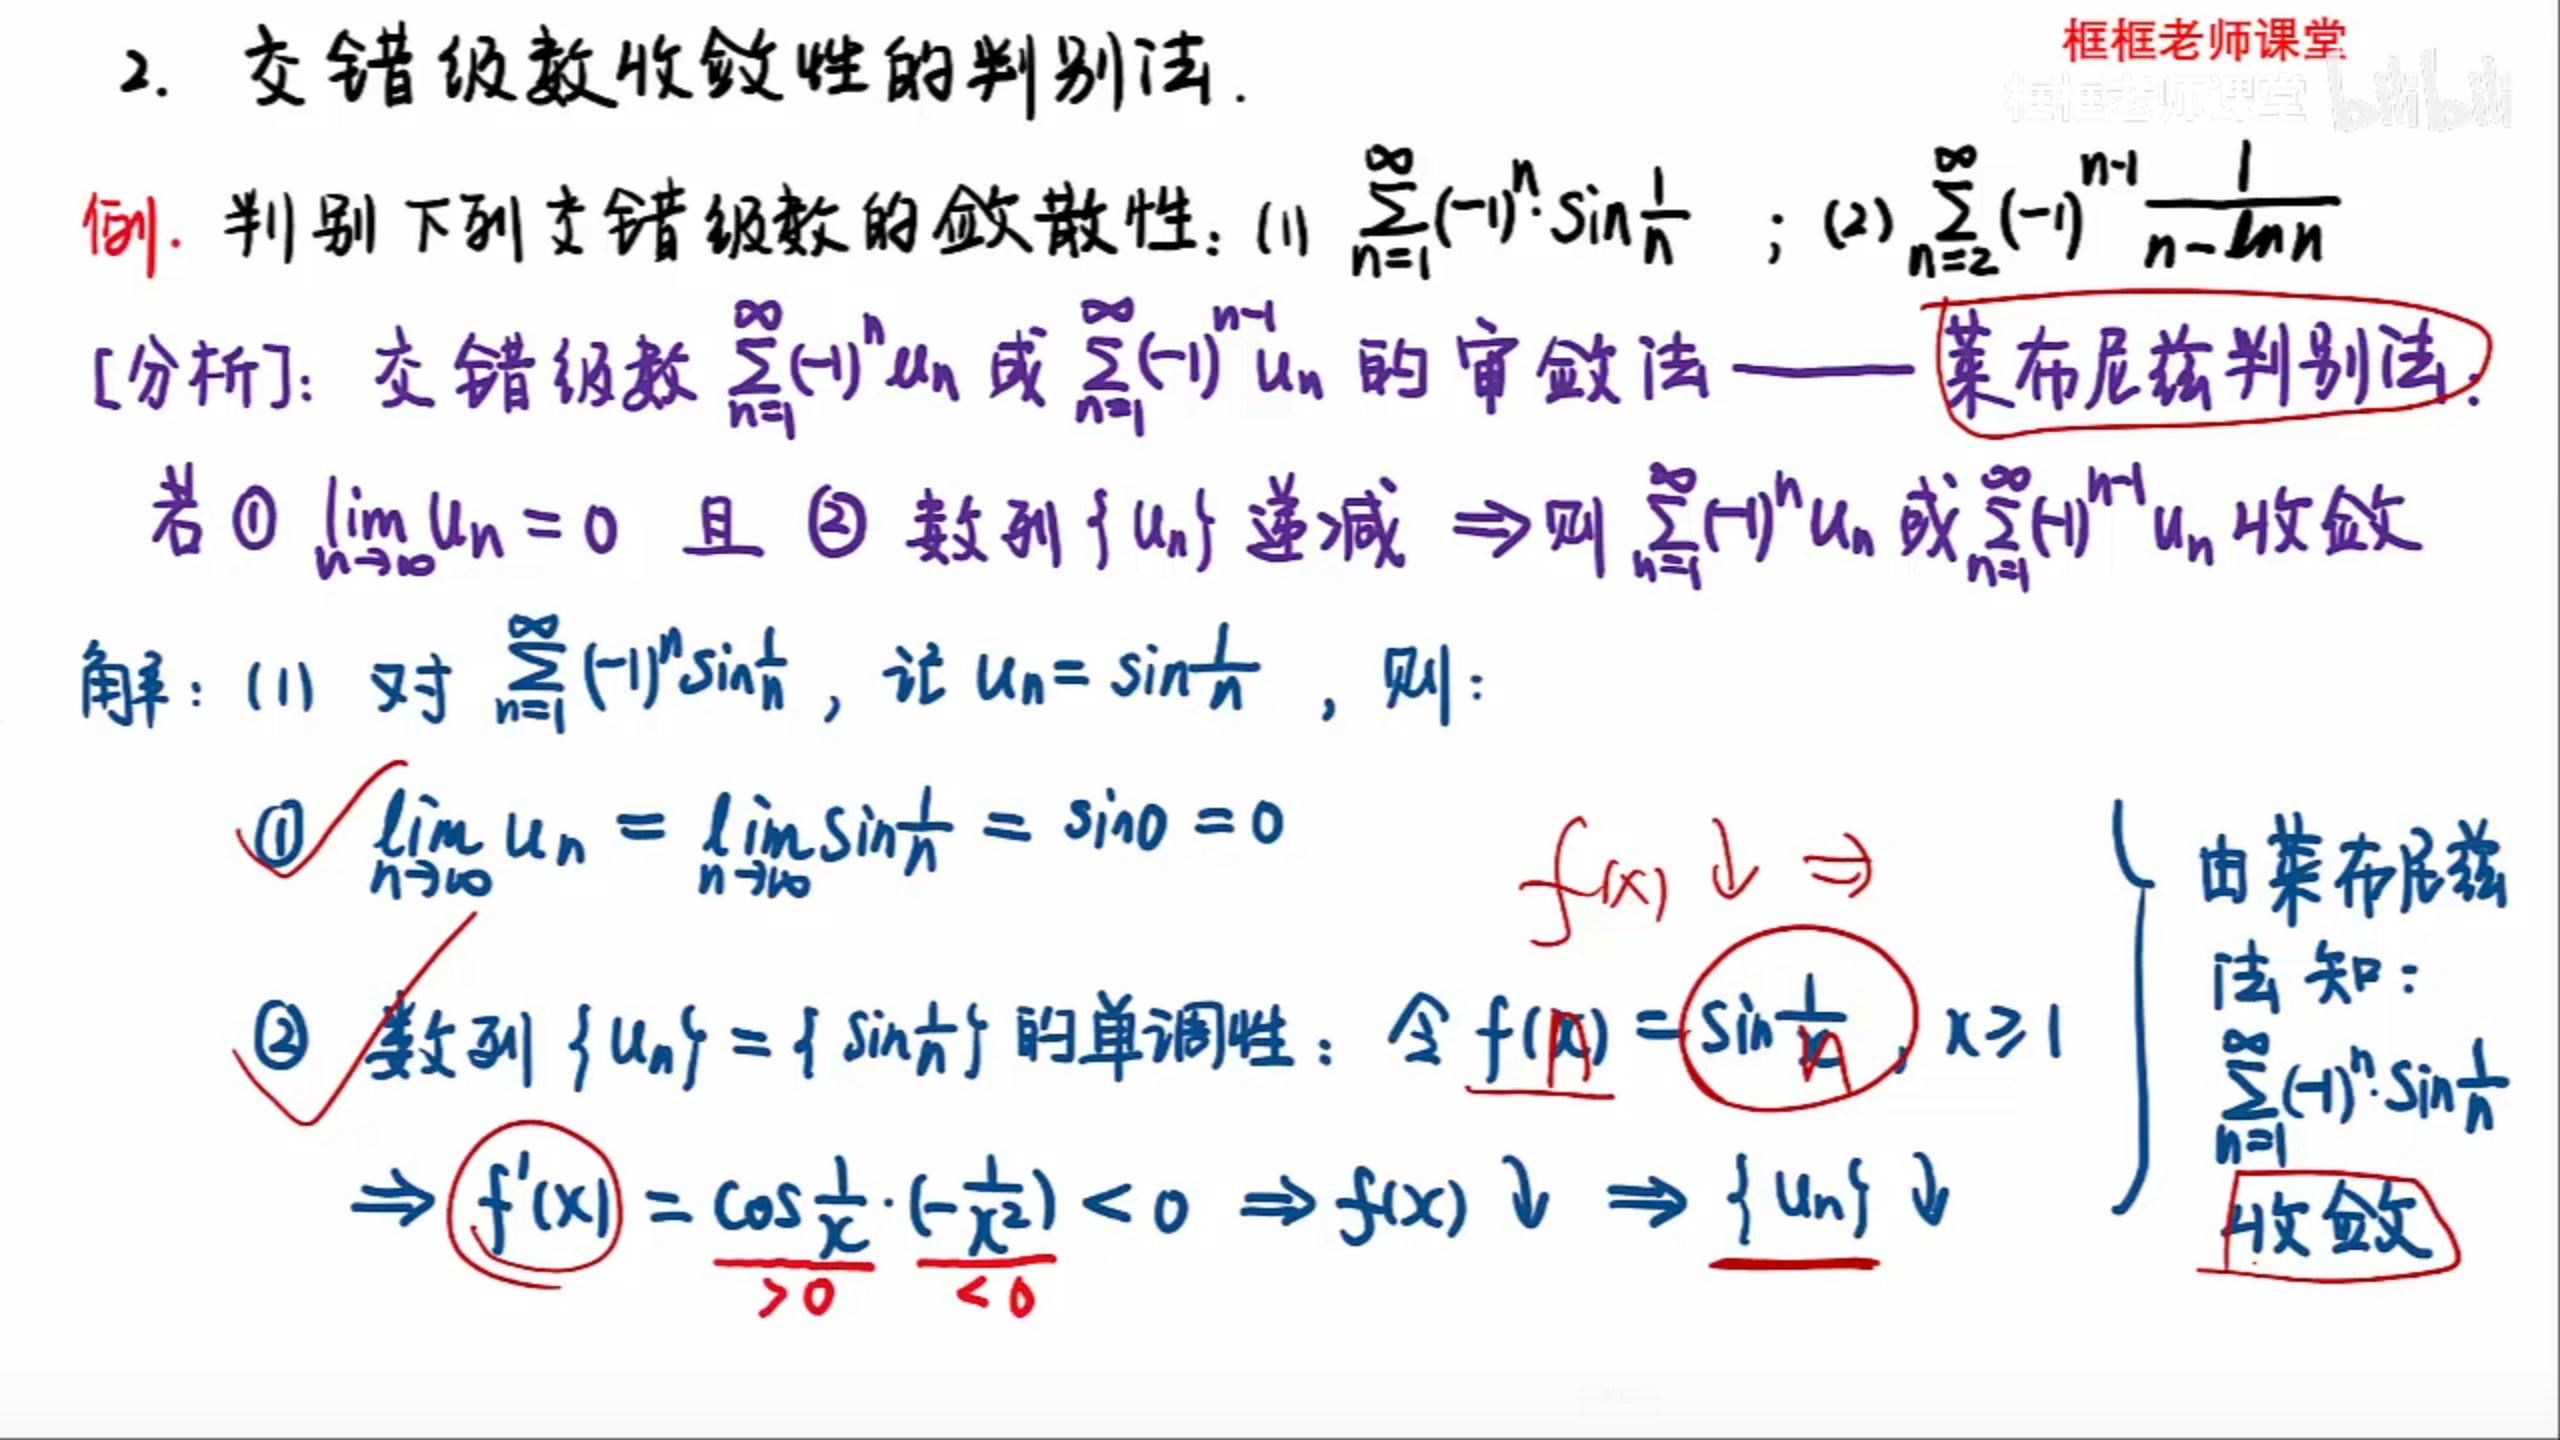 框框老师课堂
框框老师课堂 bilibili
2. 交错级数收敛性的判别法.
例. 判别下列交错级数的敛散性: (1) ∑_{n=1}^{∞} (-1)^n · sin 1/n ; (2) ∑_{n=2}^{∞} (-1)^{n-1} 1/(n-ln n)
[分析]: 交错级数 ∑_{n=1}^{∞} (-1)^n u_n 或 ∑_{n=1}^{∞} (-1)^{n-1} u_n 的审敛法 —— 莱布尼兹判别法:
若 ① lim_{n→∞} u_n = 0 且 ② 数列 {u_n} 递减 ⇒ 则 ∑_{n=1}^{∞} (-1)^n u_n 或 ∑_{n=1}^{∞} (-1)^{n-1} u_n 收敛
解: (1) 对 ∑_{n=1}^{∞} (-1)^n sin 1/n , 记 u_n = sin 1/n , 则:
① lim_{n→∞} u_n = lim_{n→∞} sin 1/n = sin0 = 0
f(x) ↓ ⇒
② 数列 {u_n} = {sin 1/n} 的单调性: 令 f(x) = sin 1/x , x ≥ 1
n n
⇒ f'(x) = cos 1/x · (-1/x²) < 0 ⇒ f(x) ↓ ⇒ {u_n} ↓
>0 <0
由莱布尼兹
法知:
∑_{n=1}^{∞} (-1)^n · sin 1/n
收敛